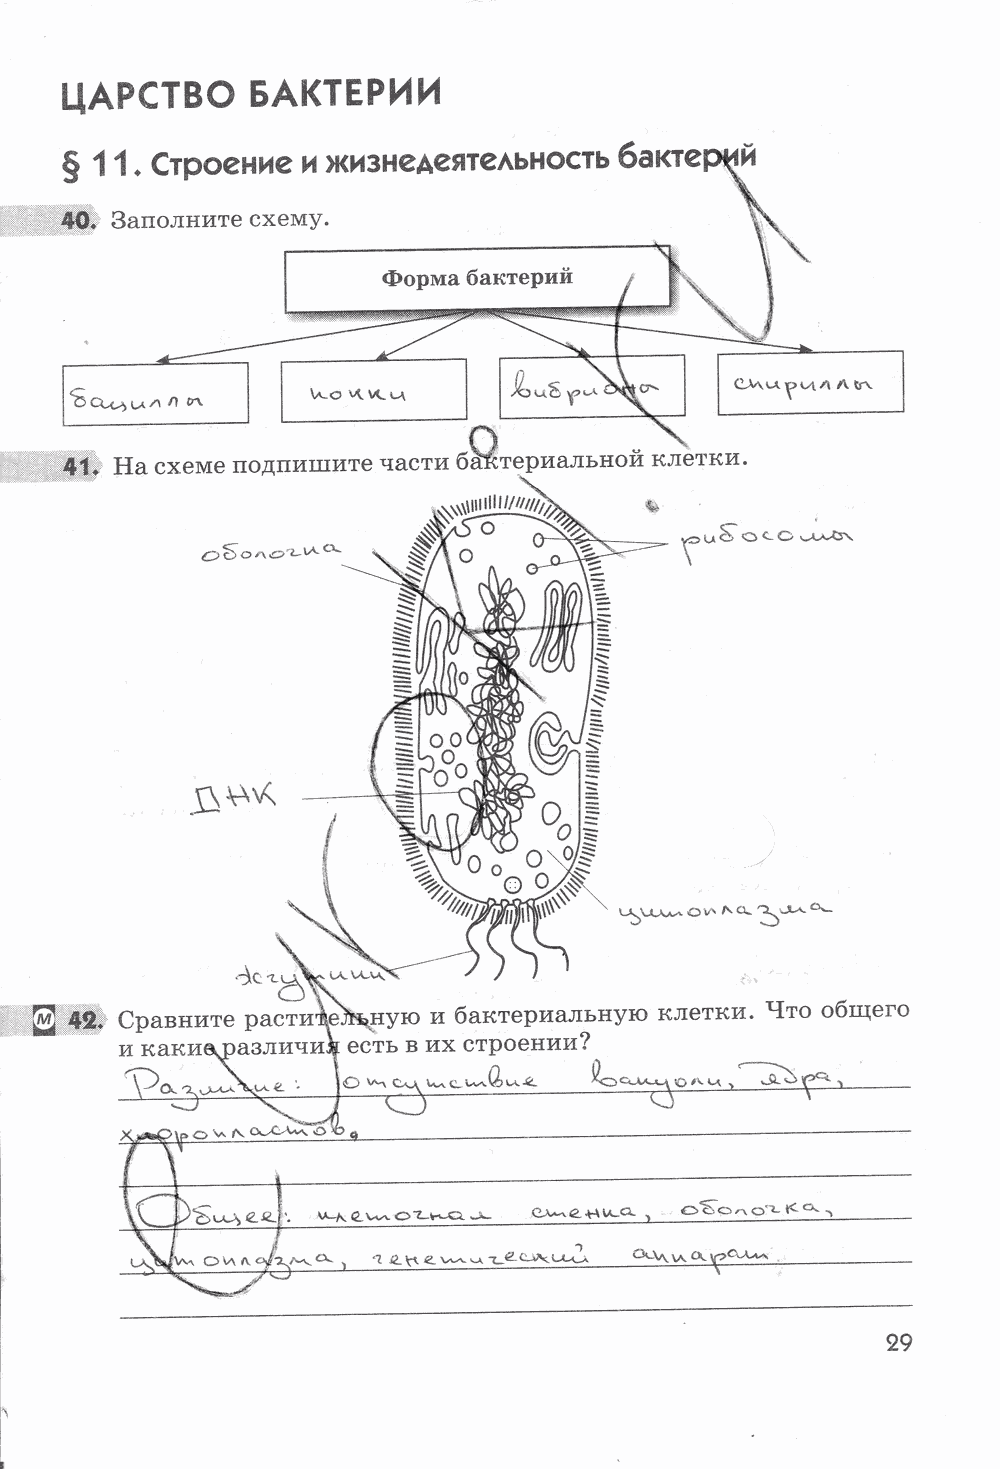 ЦАРСТВО БАКТЕРИИ
§ 11. Строение и жизнедеятельность бактерий
40. Заполните схему.
Форма бактерий
бациллы кокки вибрионы спириллы
41. На схеме подпишите части бактериальной клетки.
оболочка рибосомы
ДНК
цитоплазма
жгутики
М 42. Сравните растительную и бактериальную клетки. Что общего
и какие различия есть в их строении?
Различие: отсутствие вакуоли, ядра,
хлоропластов.
Общее: клеточная стенка, оболочка,
цитоплазма, генетический аппарат
29